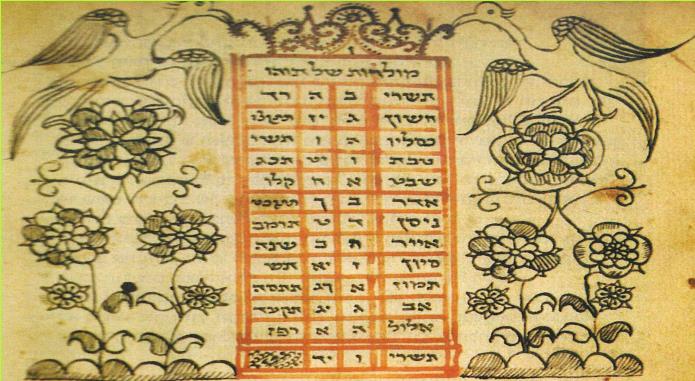 מולדות של תוהו
תשרי ב ה רד
חשון ג יז תתקצז
כסליו ה ו תשי
טבת ו יט תכג
שבט א ח קלו
אדר ב כ תתקכט
ניסן ד ט תרמב
אייר ה כב שנה
סיון ז יא סח
תמוז א כג תתסא
אב ג יב תקעד
אלול ה א רפז
תשרי ו יד